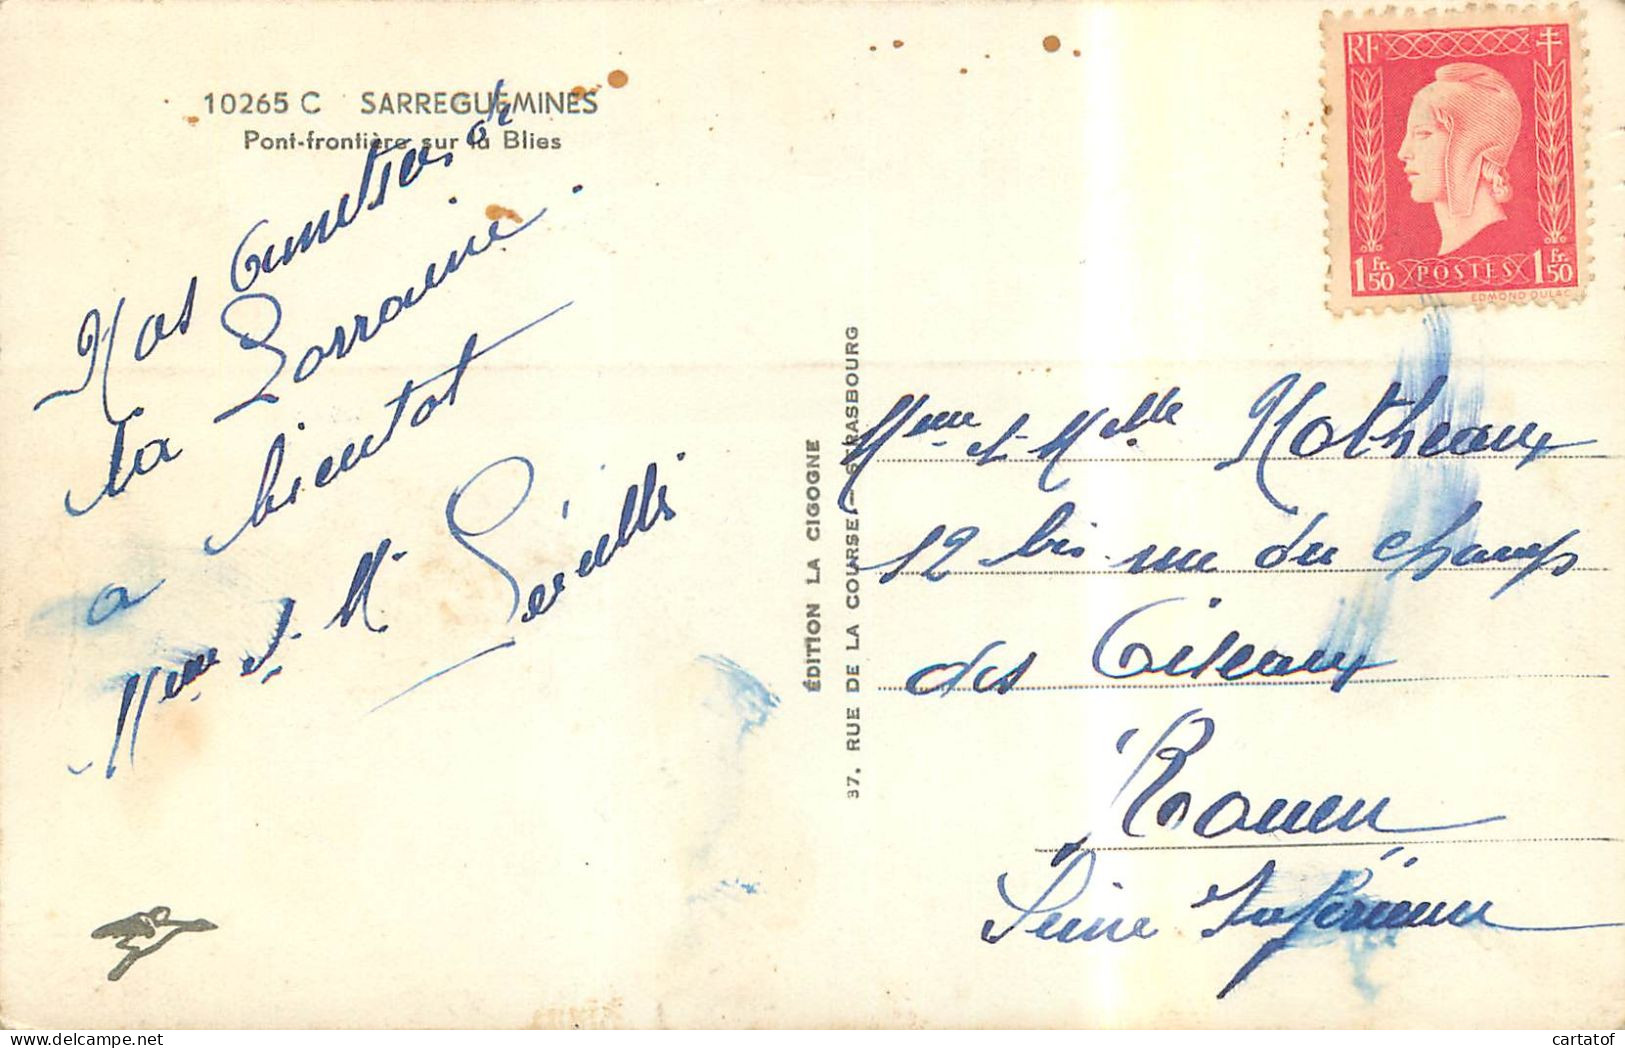 10265 C SARREGUEMINES
Pont-frontière sur la Blies
Nos amitiés de
la Lorraine.
a bientot
Mme et M
ÉDITION LA CIGOGNE
37, RUE DE LA COURSE, — STRASBOURG
RF
1 Fr. 50 POSTES 1 Fr. 50
EDMOND DULAC
Mme et Melle Notheaux
12 bis rue du champ
des Oiseaux
Rouen
Seine Inférieure
cartatof